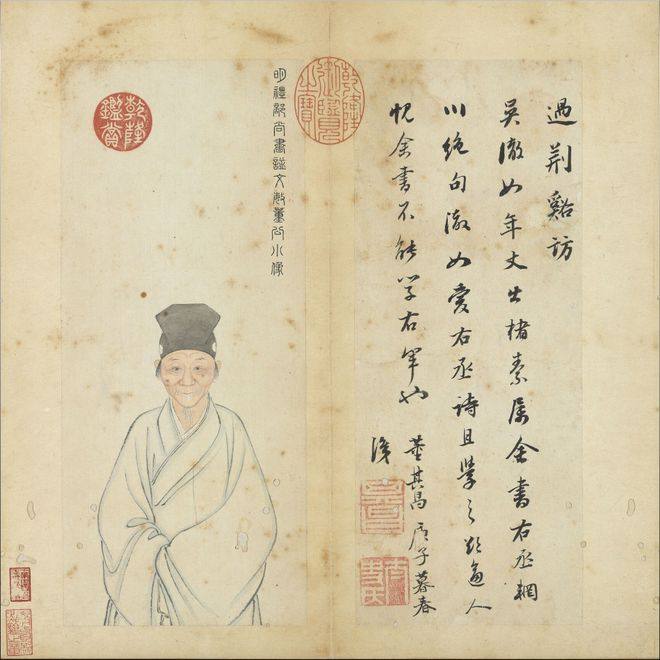 過荆谿訪
吳澈如年丈出楮素屬余書右丞輞
川絕句澈如愛右丞詩且學之欲逼人
愧余書不能學右軍也
董其昌庚子暮春
識
乾隆御覽之寶
明禮部尚書諡文敏董公小像
乾隆鑑賞